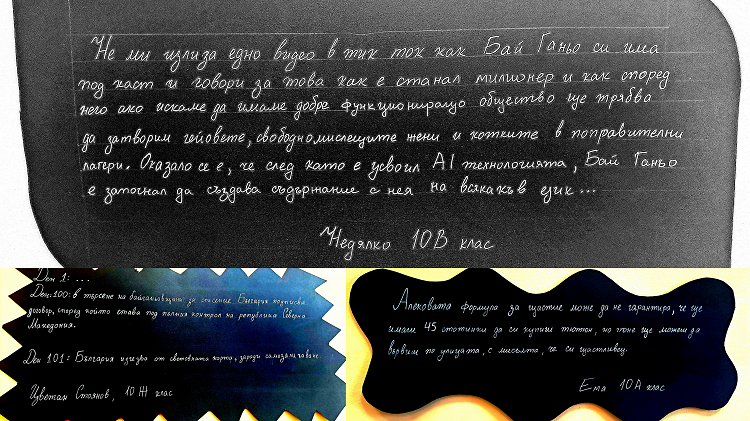 Не ми излиза едно видео в тик ток как Бай Ганьо си има
под каст и говори за това как е станал милионер и как според
него ако искаме да имаме добре функциониращо общество ще трябва
да затворим гейовете, свободномислещите жени и котките в поправителни
лагери. Оказало се е, че след като е усвоил AI технологията, Бай Ганьо
е започнал да създава съдържание с нея на всякакъв език...
Недялко 10В клас
Ден 1: ...
Ден:100: в търсене на байганьовщина за спасение България подписва
договор, според който става под пълния контрол на република Северна
Македония.
Ден 101: България изчезва от световната карта, заради самозабраване.
Цветан Стоянов, 10 Ж клас
Алековата формула за щастие може да не гарантира, че ще
имаме 45 стотинки да си купиме тютюн, но поне ще можеш да
вървим по улицата, с мисълта, че си щастливец.
Ема 10А клас